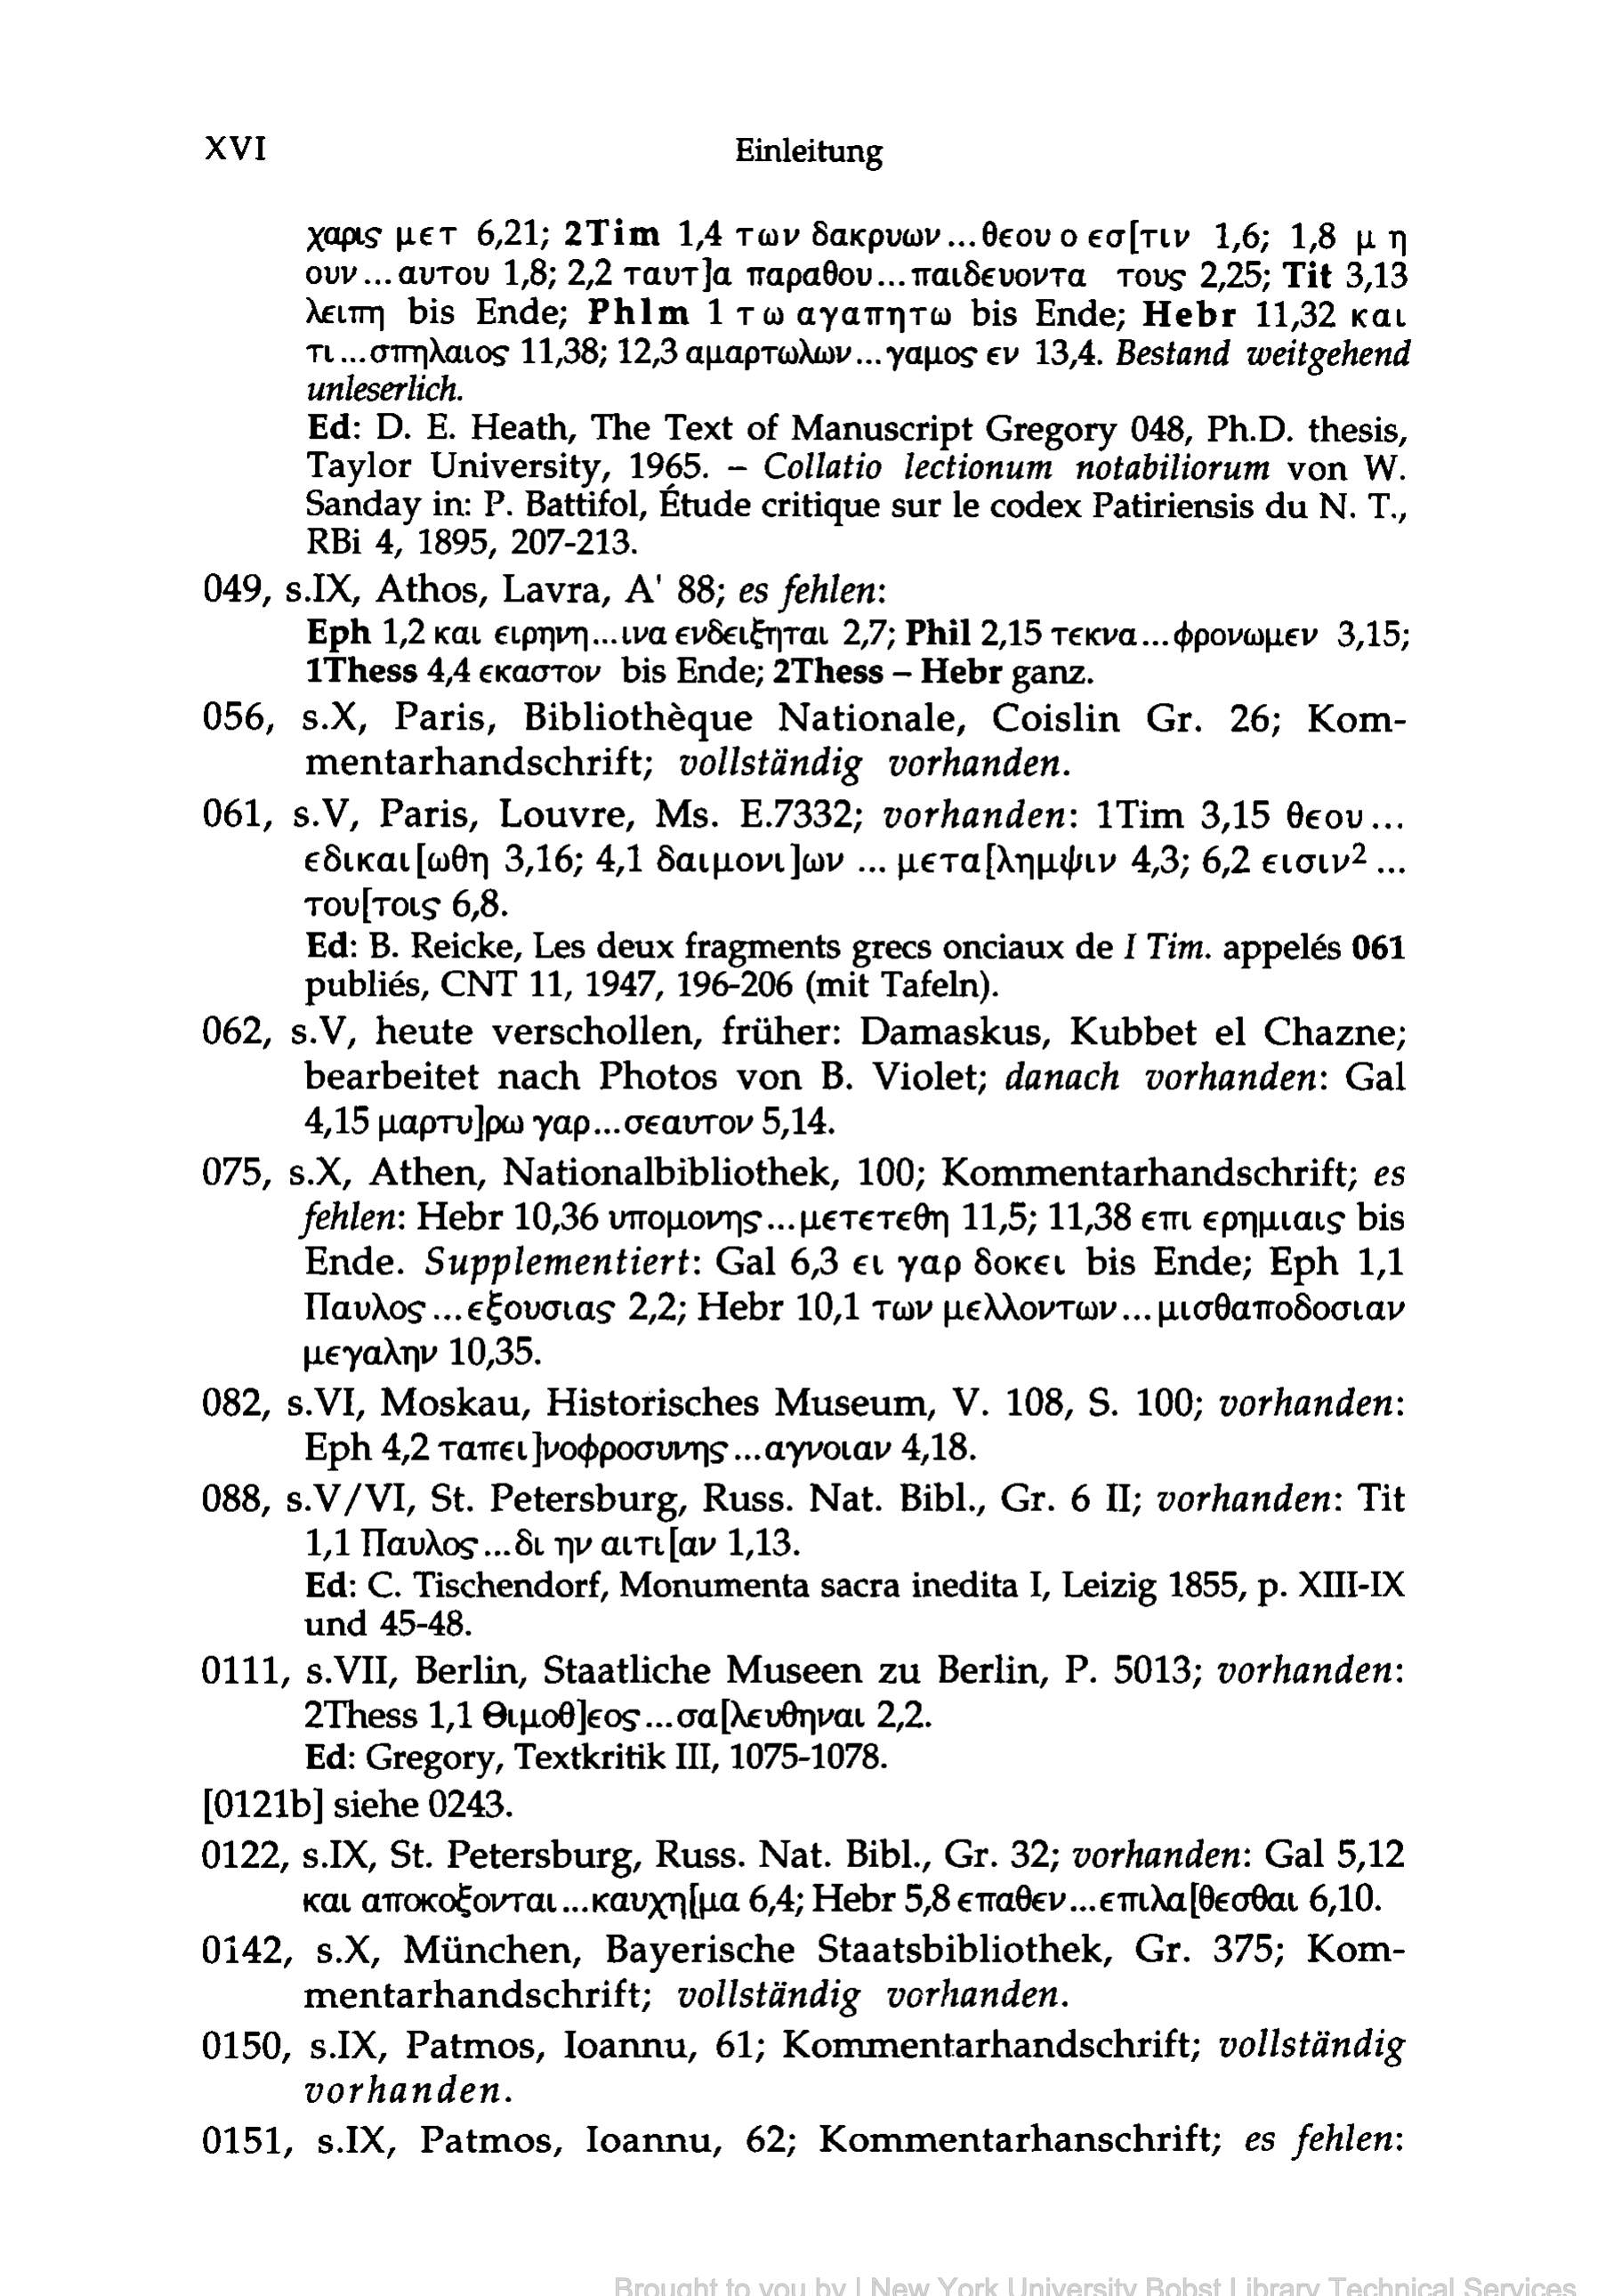 XVI Einleitung
χαρις μετ 6,21; 2Tim 1,4 των δακρυων...θεου ο εσ[τιν 1,6; 1,8 μ η
ουν...αυτου 1,8; 2,2 ταυτ]α παραθου...παιδευοντα τους 2,25; Tit 3,13
λειπη bis Ende; Phlm 1 τω αγαπητω bis Ende; Hebr 11,32 και
τι...σπηλαιος 11,38; 12,3 αμαρτωλων...γαμος εν 13,4. Bestand weitgehend
unleserlich.
Ed: D. E. Heath, The Text of Manuscript Gregory 048, Ph.D. thesis,
Taylor University, 1965. – Collatio lectionum notabiliorum von W.
Sanday in: P. Battifol, Étude critique sur le codex Patiriensis du N. T.,
RBi 4, 1895, 207-213.
049, s.IX, Athos, Lavra, A' 88; es fehlen:
Eph 1,2 και ειρηνη...ινα ενδειξηται 2,7; Phil 2,15 τεκνα...φρονωμεν 3,15;
1Thess 4,4 εκαστον bis Ende; 2Thess – Hebr ganz.
056, s.X, Paris, Bibliothèque Nationale, Coislin Gr. 26; Kom-
mentarhandschrift; vollständig vorhanden.
061, s.V, Paris, Louvre, Ms. E.7332; vorhanden: 1Tim 3,15 θεου...
εδικαι[ωθη 3,16; 4,1 δαιμονι]ων ... μετα[λημψιν 4,3; 6,2 εισιν² ...
του[τοις 6,8.
Ed: B. Reicke, Les deux fragments grecs onciaux de I Tim. appelés 061
publiés, CNT 11, 1947, 196-206 (mit Tafeln).
062, s.V, heute verschollen, früher: Damaskus, Kubbet el Chazne;
bearbeitet nach Photos von B. Violet; danach vorhanden: Gal
4,15 μαρτυ]ρω γαρ...σεαυτον 5,14.
075, s.X, Athen, Nationalbibliothek, 100; Kommentarhandschrift; es
fehlen: Hebr 10,36 υπομονης...μετετεθη 11,5; 11,38 επι ερημιαις bis
Ende. Supplementiert: Gal 6,3 ει γαρ δοκει bis Ende; Eph 1,1
Παυλος...εξουσιας 2,2; Hebr 10,1 των μελλοντων...μισθαποδοσιαν
μεγαλην 10,35.
082, s.VI, Moskau, Historisches Museum, V. 108, S. 100; vorhanden:
Eph 4,2 ταπει]νοφροσυνης...αγνοιαν 4,18.
088, s.V/VI, St. Petersburg, Russ. Nat. Bibl., Gr. 6 II; vorhanden: Tit
1,1 Παυλος...δι ην αιτι[αν 1,13.
Ed: C. Tischendorf, Monumenta sacra inedita I, Leizig 1855, p. XIII-IX
und 45-48.
0111, s.VII, Berlin, Staatliche Museen zu Berlin, P. 5013; vorhanden:
2Thess 1,1 Θιμοθ]εος...σα[λευθηναι 2,2.
Ed: Gregory, Textkritik III, 1075-1078.
[0121b] siehe 0243.
0122, s.IX, St. Petersburg, Russ. Nat. Bibl., Gr. 32; vorhanden: Gal 5,12
και αποκοξονται...καυχη[μα 6,4; Hebr 5,8 επαθεν...επιλα[θεσθαι 6,10.
0142, s.X, München, Bayerische Staatsbibliothek, Gr. 375; Kom-
mentarhandschrift; vollständig vorhanden.
0150, s.IX, Patmos, Ioannu, 61; Kommentarhandschrift; vollständig
vorhanden.
0151, s.IX, Patmos, Ioannu, 62; Kommentarhanschrift; es fehlen:
Brought to you by | New York University Bobst Library Technical Services